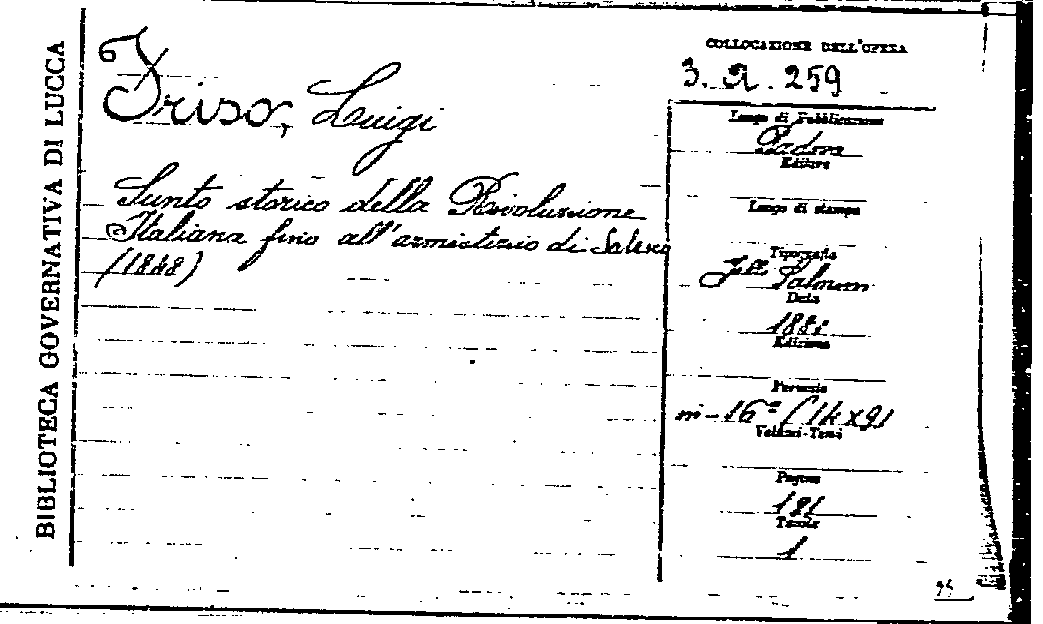 BIBLIOTECA GOVERNATIVA DI LUCCA
Friso, Luigi
Sunto storico della Rivoluzione
Italiana fino all'armistizio di Salasco
(1848)
COLLOCAZIONE DELL'OPERA
3. A. 259
Luogo di Pubblicazione
Padova
Editore
Luogo di stampa
Tipografia
Data
188
Edizione
Formato
in-16º (14x9)
Volumi-Tomi
Pagine
181
Tavole
1